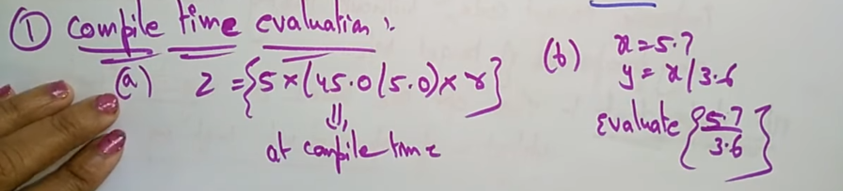 ① Compile time evaluation :
(a) z = {5 × (45.0/5.0) × r}
⇓
at compile time
(b) x = 5.7
y = x/3.6
Evaluate {5.7/3.6}